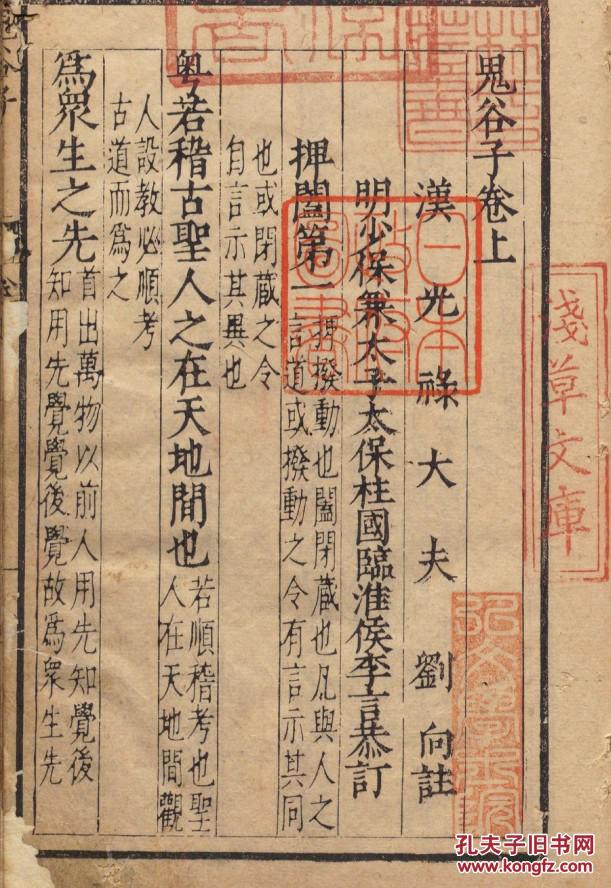 淺草文庫
林氏藏書
鬼谷子卷上
漢光祿大夫劉向註
弘文學士院
日本政府圖書
明少保兼太子太保柱國臨淮侯李言恭訂
捭闔第一
捭撥動也闔閉藏也凡與人之
言道或撥動之令有言示其同
也或閉藏之令
自言示其異也
粵若稽古聖人之在天地間也
若順稽考也聖
人在天地間觀
人設教必順考
古道而爲之
爲眾生之先
首出萬物以前人用先知覺後
知用先覺覺後覺故爲眾生先
孔夫子旧书网
www.kongfz.com